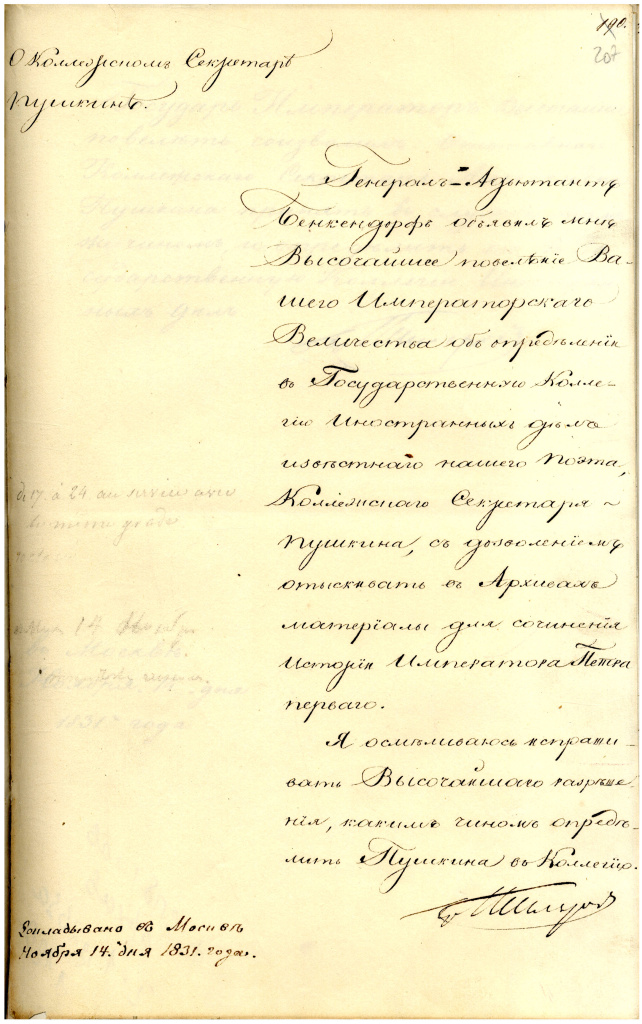 190.
207
О Коллежскомъ Секретарѣ
Пушкинѣ.
Генералъ-Адъютантъ
Бенкендорфъ объявилъ мнѣ
Высочайшее повелѣніе Ва-
шего Императорскаго
Величества объ опредѣленіи
въ Государственную Колле-
гію Иностранныхъ дѣлъ
извѣстнаго нашего Поэта,
Коллежскаго Секретаря
Пушкина, съ дозволеніемъ
отыскивать въ Архивахъ
матеріалы для сочиненія
Исторіи Императора Петра
перваго.
Я осмѣливаюсь испраши-
вать Высочайшаго разрѣше-
нія, какимъ чиномъ опредѣ-
лить Пушкина въ Коллегію.
Докладывано въ Москвѣ
Ноября 14. дня 1831. года.